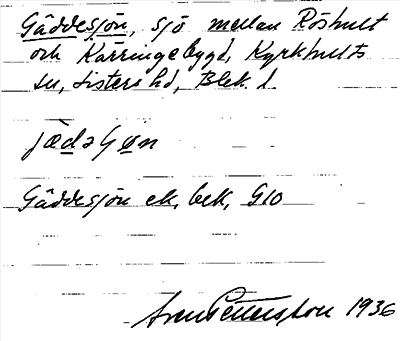 Gäddesjön, sjö mellan Röshult
och Kärringebygd, Kyrkhults
sn, Listers hd, Blek. l.
jæ̀dəʃøn
Gäddesjön ek, bek, G10
Sven Pettersson 1936